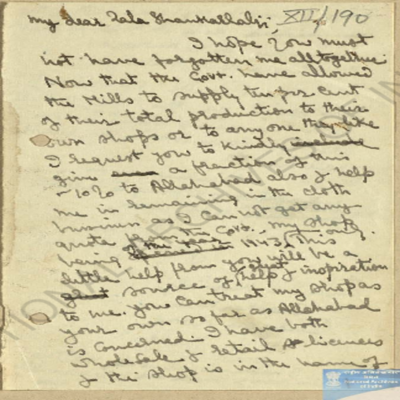 My dear Lala Shankarlalji, XII/190
I hope you must
not have forgotten me alltogether.
Now that the Govt. have allowed
the Mills to supply ten per cent
of their total production to their
own shops or to any one they like
I request you to kindly include
give a fraction of this
- 10% to Allahabad also & help
me in remaining in the cloth
business as I can not get any
quota from the Govt. My shop
being of the year 1943 only. This
little help from you will be a
great source of help & inspiration
to me. You can treat my shop as
your own so far as Allahabad
is concerned. I have both
wholesale & retail licences
& the shop is in the name of